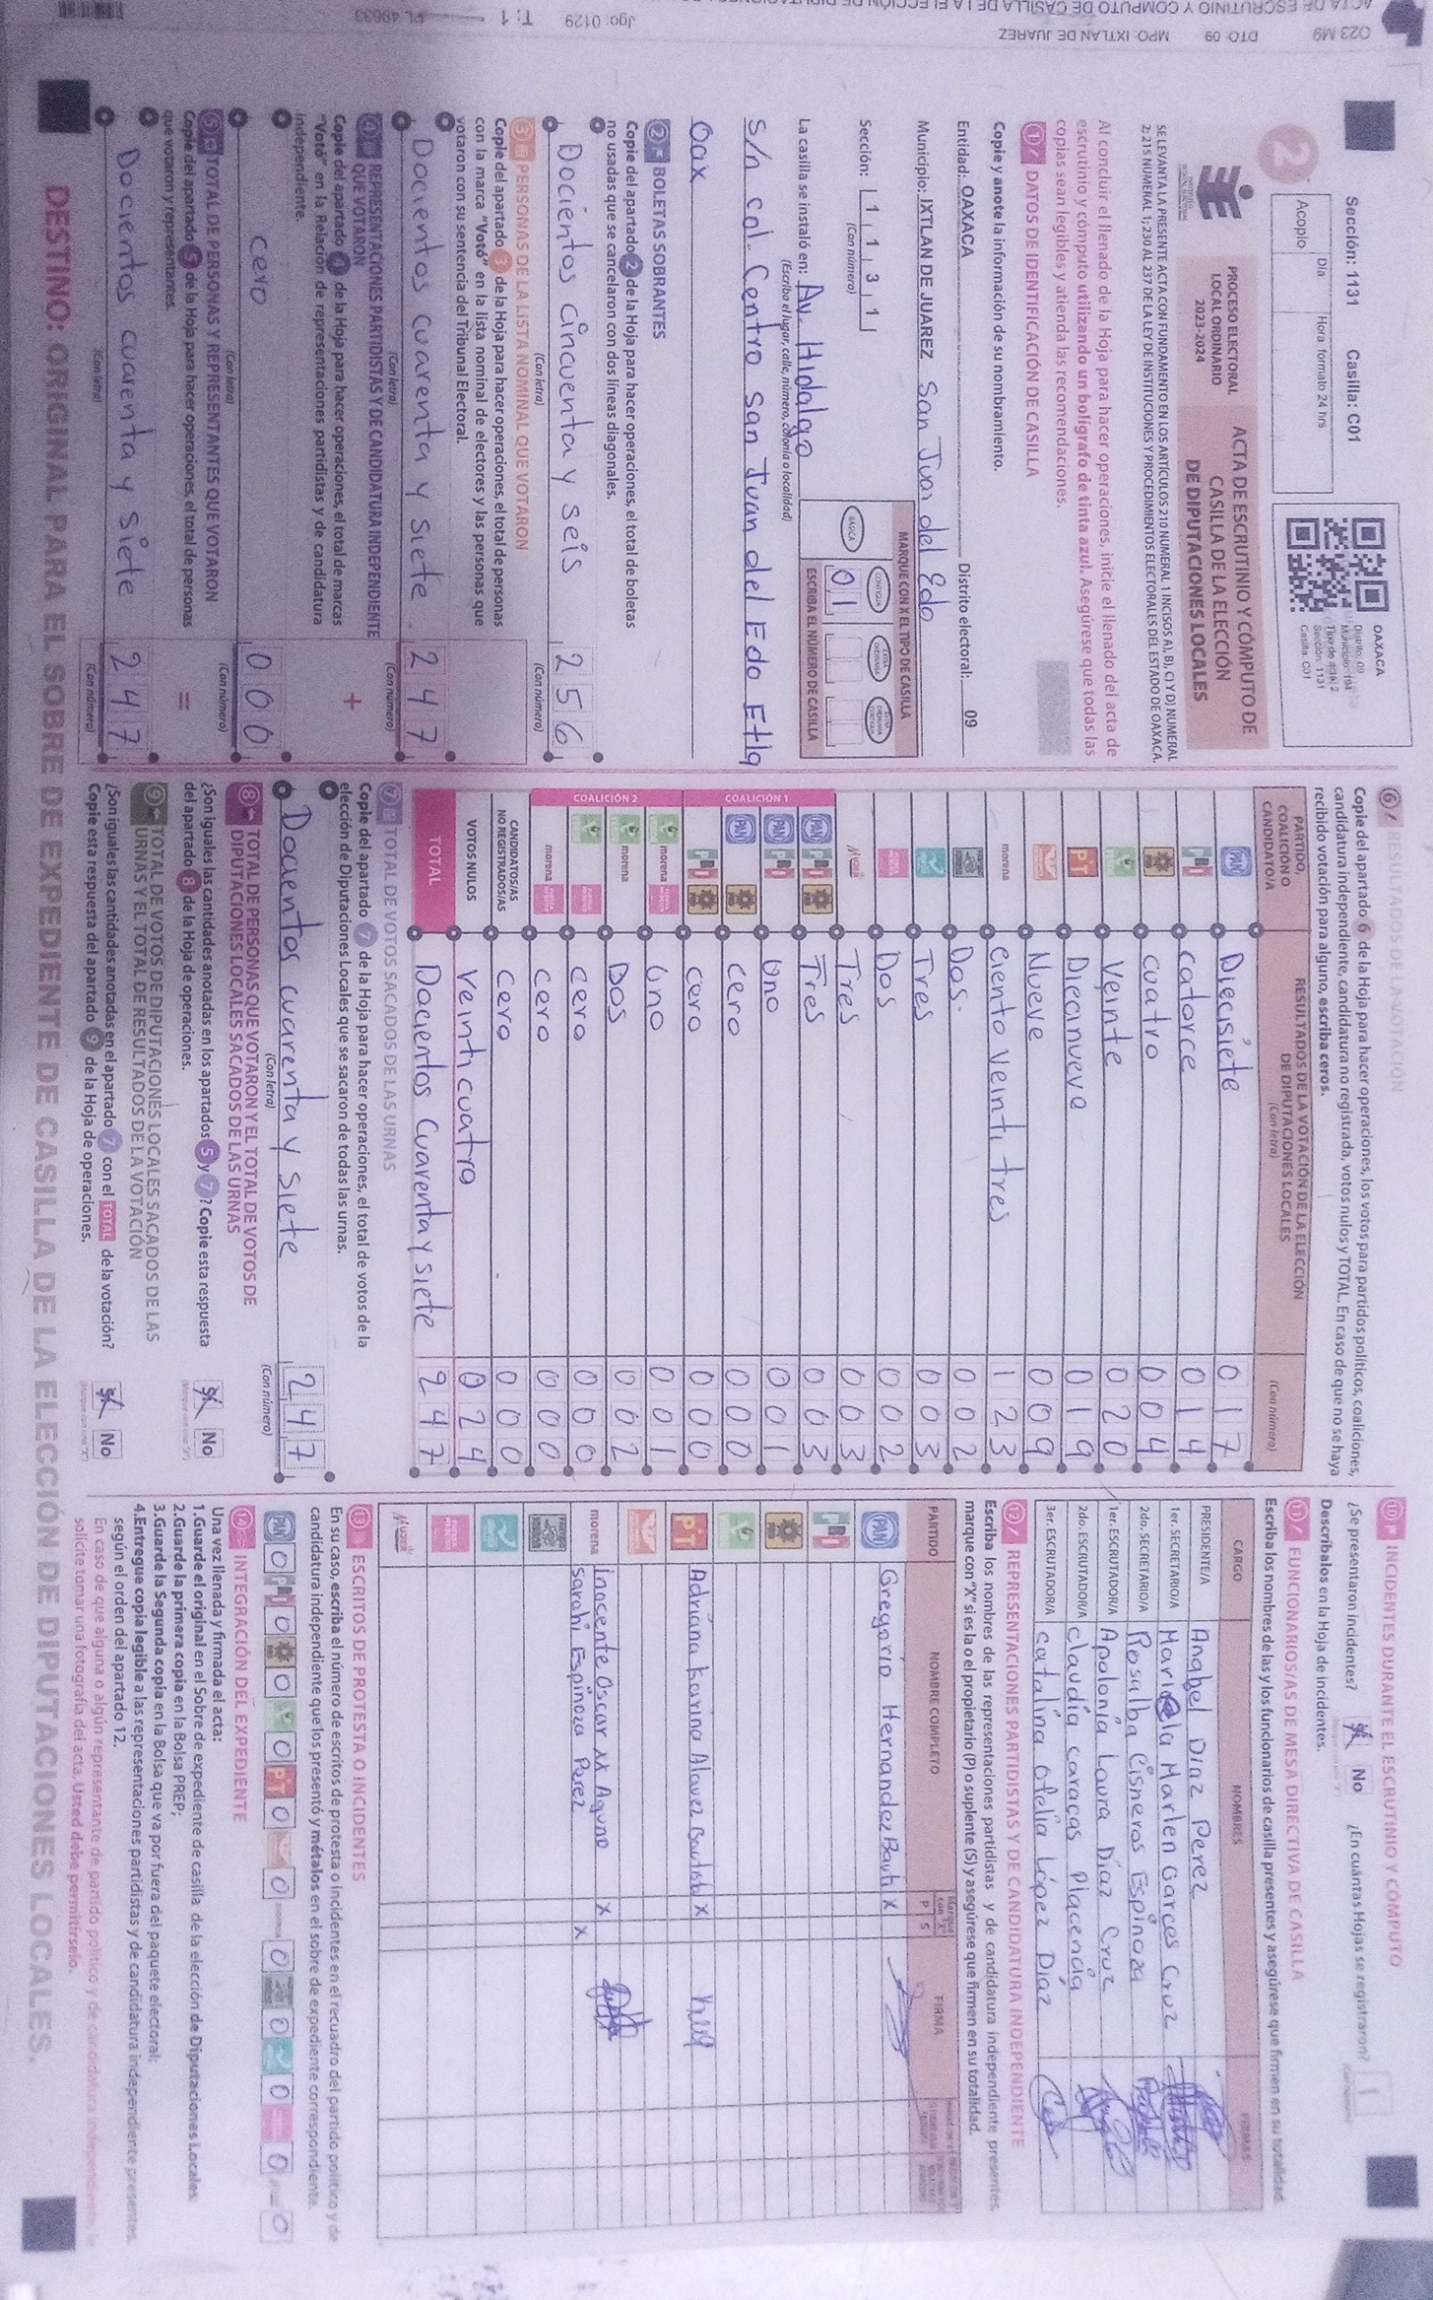 O23 M9 DTO: 09 MPO: IXTLAN DE JUAREZ Jgo: 0129 T: 1
Sección: 1131 Casilla: C01
Día Hora: formato 24 hrs
Acopio
2
OAXACA
Sección: 1131
Casilla: C01
PROCESO ELECTORAL
LOCAL ORDINARIO
2023-2024
ACTA DE ESCRUTINIO Y CÓMPUTO DE
CASILLA DE LA ELECCIÓN
DE DIPUTACIONES LOCALES
SE LEVANTA LA PRESENTE ACTA CON FUNDAMENTO EN LOS ARTÍCULOS 210 NUMERAL 1 INCISOS A), B), C) Y D) NUMERAL
2; 215 NUMERAL 1; 230 AL 237 DE LA LEY DE INSTITUCIONES Y PROCEDIMIENTOS ELECTORALES DEL ESTADO DE OAXACA.
Al concluir el llenado de la Hoja para hacer operaciones, inicie el llenado del acta de
escrutinio y cómputo utilizando un bolígrafo de tinta azul. Asegúrese que todas las
copias sean legibles y atienda las recomendaciones.
1 DATOS DE IDENTIFICACIÓN DE CASILLA
Copie y anote la información de su nombramiento.
Entidad: OAXACA Distrito electoral: 09
Municipio: IXTLAN DE JUAREZ San Juan del Edo
Sección: 1 1 3 1
(Con número)
MARQUE CON X EL TIPO DE CASILLA
BÁSICA CONTIGUA
01
ESCRIBA EL NÚMERO DE CASILLA
La casilla se instaló en: Av. Hidalgo
(Escriba el lugar, calle, número, colonia o localidad)
S/n col. Centro San Juan del Edo Etla
Oax
2 BOLETAS SOBRANTES
Copie del apartado 2 de la Hoja para hacer operaciones, el total de boletas
no usadas que se cancelaron con dos líneas diagonales.
Docientos cincuenta y seis 256
(Con letra) (Con número)
3 PERSONAS DE LA LISTA NOMINAL QUE VOTARON
Copie del apartado 3 de la Hoja para hacer operaciones, el total de personas
con la marca "Votó" en la lista nominal de electores y las personas que
votaron con su sentencia del Tribunal Electoral.
Docientos cuarenta y siete. 247
(Con letra) (Con número)
4 REPRESENTACIONES PARTIDISTAS Y DE CANDIDATURA INDEPENDIENTE
QUE VOTARON
Copie del apartado 4 de la Hoja para hacer operaciones, el total de marcas
"Votó" en la Relación de representaciones partidistas y de candidatura
independiente.
+
cero 000
(Con letra) (Con número)
5 TOTAL DE PERSONAS Y REPRESENTANTES QUE VOTARON
Copie del apartado 5 de la Hoja para hacer operaciones, el total de personas
que votaron y representantes.
=
Docientos cuarenta y siete 247
(Con letra) (Con número)
6 RESULTADOS DE LA VOTACIÓN
Copie del apartado 6 de la Hoja para hacer operaciones, los votos para partidos políticos, coaliciones,
candidatura independiente, candidatura no registrada, votos nulos y TOTAL. En caso de que no se haya
recibido votación para alguno, escriba ceros.
PARTIDO, COALICIÓN O CANDIDATO/A
RESULTADOS DE LA VOTACIÓN DE LA ELECCIÓN DE DIPUTACIONES LOCALES
(Con letra) (Con número)
PAN Diecisiete 017
PRI catorce 014
PRD cuatro 004
Veinte 020
PT Diecinueve 019
Nueve 009
morena Ciento veinti tres 123
Dos. 002
Tres 003
Dos 002
Tres 003
COALICIÓN 1
PAN PRI PRD Tres 003
PAN PRI Uno 001
PAN PRD cero 000
PRI PRD cero 000
COALICIÓN 2
morena Uno 001
morena Dos 002
cero 000
morena cero 000
CANDIDATOS/AS NO REGISTRADOS/AS cero 000
VOTOS NULOS Veinticuatro 024
TOTAL Docientos Cuarenta y siete 247
7 TOTAL DE VOTOS SACADOS DE LAS URNAS
Copie del apartado 7 de la Hoja para hacer operaciones, el total de votos de la
elección de Diputaciones Locales que se sacaron de todas las urnas.
Docientos cuarenta y siete 247
(Con letra) (Con número)
8 TOTAL DE PERSONAS QUE VOTARON Y EL TOTAL DE VOTOS DE
DIPUTACIONES LOCALES SACADOS DE LAS URNAS
¿Son iguales las cantidades anotadas en los apartados 5 y 7? Copie esta respuesta
del apartado 8 de la Hoja de operaciones. Sí No
9 TOTAL DE VOTOS DE DIPUTACIONES LOCALES SACADOS DE LAS
URNAS Y EL TOTAL DE RESULTADOS DE LA VOTACIÓN
¿Son iguales las cantidades anotadas en el apartado 7 con el TOTAL de la votación?
Copie esta respuesta del apartado 9 de la Hoja de operaciones. Sí No
10 INCIDENTES DURANTE EL ESCRUTINIO Y CÓMPUTO
¿Se presentaron incidentes? Sí No ¿En cuántas Hojas se registraron? 1
Descríbalos en la Hoja de incidentes.
11 FUNCIONARIOS/AS DE MESA DIRECTIVA DE CASILLA
Escriba los nombres de las y los funcionarios de casilla presentes y asegúrese que firmen en su totalidad.
CARGO NOMBRES FIRMAS
PRESIDENTE/A Anabel Díaz Perez
1er. SECRETARIO/A Mariela Marlen Garces Cruz
2do. SECRETARIO/A Rosalba Cisneros Espinoza
1er. ESCRUTADOR/A Apolonia Laura Díaz Cruz
2do. ESCRUTADOR/A Claudia caracas Placencia
3er. ESCRUTADOR/A catalina ofelia López Díaz
12 REPRESENTACIONES PARTIDISTAS Y DE CANDIDATURA INDEPENDIENTE
Escriba los nombres de las representaciones partidistas y de candidatura independiente presentes,
marque con "X" si es la o el propietario (P) o suplente (S) y asegúrese que firmen en su totalidad.
PARTIDO NOMBRE COMPLETO P S FIRMA
PAN Gregorio Hernandez Bauti X
PRI
PRD
PT Adriana Karina Alavez Bautista X
morena Inocente Oscar Aquino X
Sarahi Espinoza Perez X
13 ESCRITOS DE PROTESTA O INCIDENTES
En su caso, escriba el número de escritos de protesta o incidentes en el recuadro del partido político y de
candidatura independiente que los presentó y métalos en el sobre de expediente correspondiente.
PAN 0 PRI 0 PRD 0 0 PT 0 0 0 0 0 0 0
14 INTEGRACIÓN DEL EXPEDIENTE
Una vez llenada y firmada el acta:
1.Guarde el original en el Sobre de expediente de casilla de la elección de Diputaciones Locales.
2.Guarde la primera copia en la Bolsa PREP;
3.Guarde la Segunda copia en la Bolsa que va por fuera del paquete electoral;
4.Entregue copia legible a las representaciones partidistas y de candidatura independiente presentes,
según el orden del apartado 12.
En caso de que alguna o algún representante de partido político y de candidatura independiente, le
solicite tomar una fotografía del acta. Usted debe permitírselo.
DESTINO: ORIGINAL PARA EL SOBRE DE EXPEDIENTE DE CASILLA DE LA ELECCIÓN DE DIPUTACIONES LOCALES.